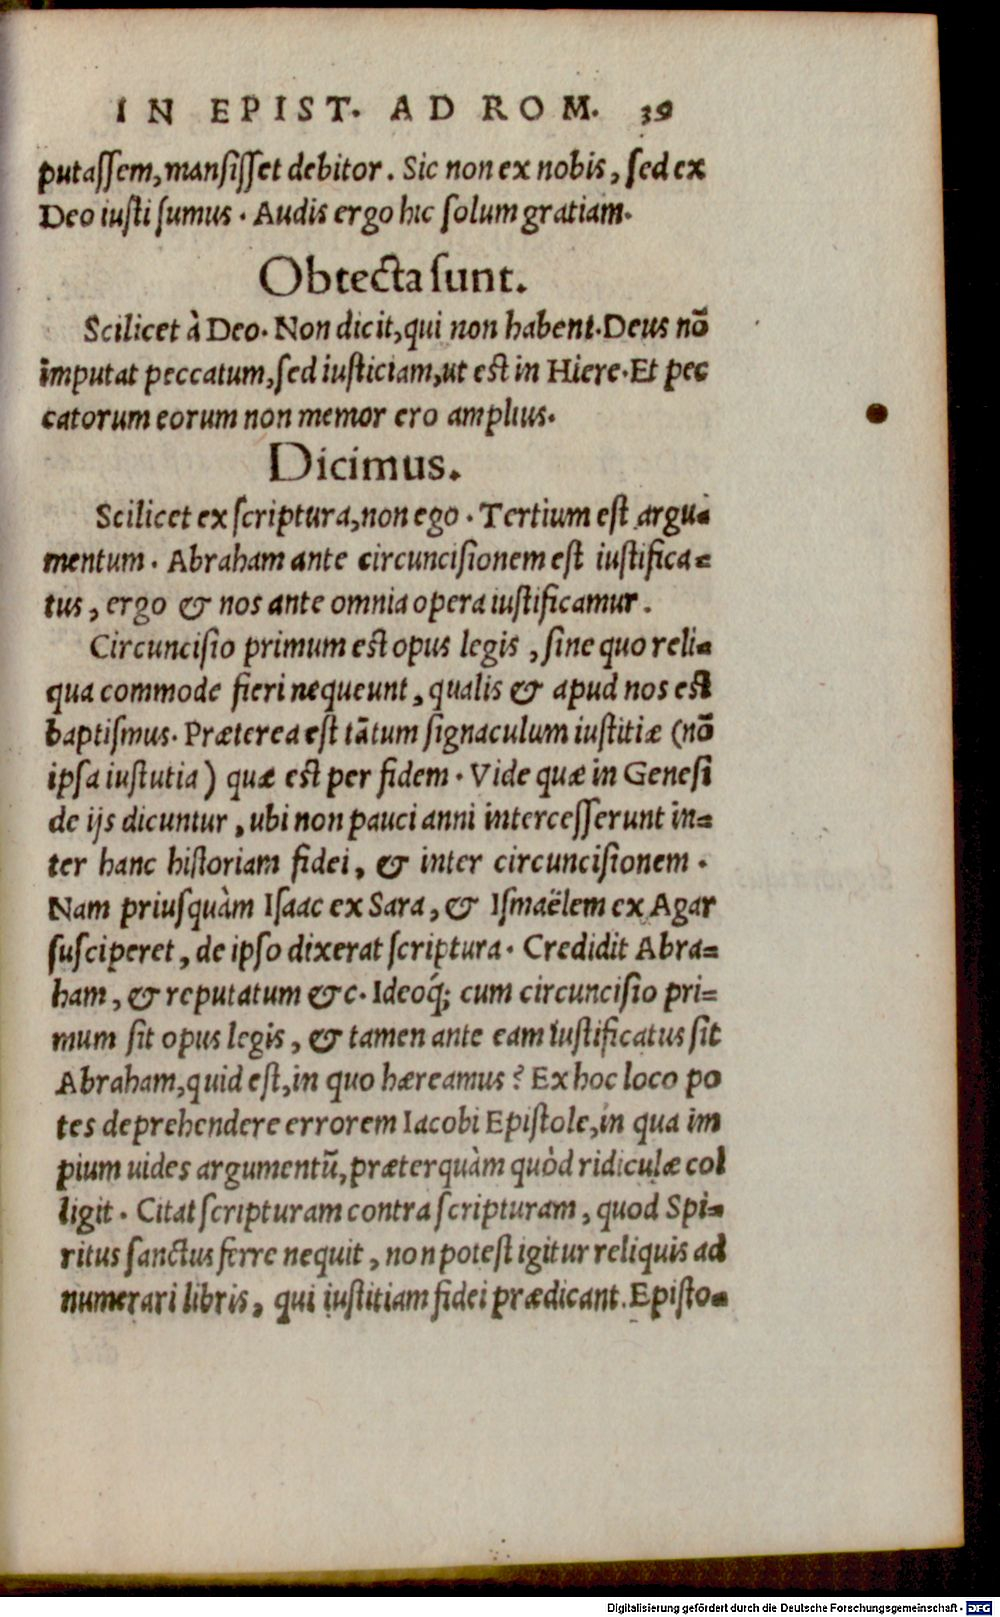 IN EPIST. AD ROM. 39
putaſſem, manſiſſet debitor. Sic non ex nobis, ſed ex
Deo iuſti ſumus. Audis ergo hic ſolum gratiam.
Obtecta ſunt.
Scilicet à Deo. Non dicit, qui non habent. Deus nō
imputat peccatum, ſed iuſticiam, ut eſt in Hiere. Et pec
catorum eorum non memor ero amplius.
Dicimus.
Scilicet ex ſcriptura, non ego. Tertium eſt argu-
mentum. Abraham ante circuncisionem eſt iuſtifica-
tus, ergo & nos ante omnia opera iuſtificamur.
Circunciſio primum eſt opus legis, ſine quo reli-
qua commode fieri nequeunt, qualis & apud nos eſt
baptiſmus. Præterea eſt tātum ſignaculum iuſtitiæ (nō
ipſa iuſtutia) quæ eſt per fidem. Vide quæ in Geneſi
de ijs dicuntur, ubi non pauci anni interceſſerunt in-
ter hanc hiſtoriam fidei, & inter circunciſionem.
Nam priuſquàm Iſaac ex Sara, & Iſmaëlem ex Agar
ſuſciperet, de ipſo dixerat ſcriptura. Credidit Abra-
ham, & reputatum &c. Ideoq́; cum circunciſio pri-
mum ſit opus legis, & tamen ante eam iuſtificatus ſit
Abraham, quid eſt, in quo hæreamus? Ex hoc loco po
tes deprehendere errorem Iacobi Epiſtole, in qua im
pium uides argumentū, præterquàm quòd ridiculæ col
ligit. Citat ſcripturam contra ſcripturam, quod Spi-
ritus ſanctus ferre nequit, non poteſt igitur reliquis ad
numerari libris, qui iuſtitiam fidei prædicant. Epiſto-
Digitalisierung gefördert durch die Deutsche Forschungsgemeinschaft - DFG